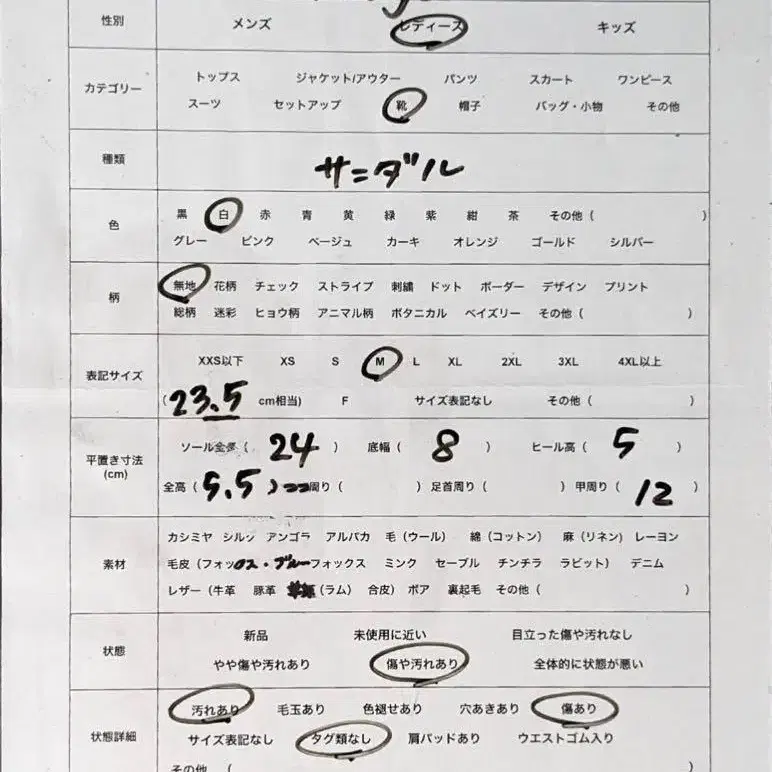 性別 メンズ レディース キッズ
カテゴリー
トップス ジャケット/アウター パンツ スカート ワンピース
スーツ セットアップ 靴 帽子 バッグ・小物 その他
種類 サンダル
色
黒 白 赤 青 黄 緑 紫 紺 茶 その他 ( )
グレー ピンク ベージュ カーキ オレンジ ゴールド シルバー
柄
無地 花柄 チェック ストライプ 刺繍 ドット ボーダー デザイン プリント
総柄 迷彩 ヒョウ柄 アニマル柄 ボタニカル ペイズリー その他 ( )
表記サイズ
XXS以下 XS S M L XL 2XL 3XL 4XL以上
(23.5 cm相当) F サイズ表記なし その他 ( )
平置き寸法
(cm)
ソール全長 ( 24 ) 底幅 ( 8 ) ヒール高 ( 5 )
全高 ( 5.5 ) 周り ( ) 足首周り ( ) 甲周り ( 12 )
素材
カシミヤ シルク アンゴラ アルパカ 毛 (ウール) 綿 (コットン) 麻 (リネン) レーヨン
毛皮 (フォックス・ブルーフォックス ミンク セーブル チンチラ ラビット) デニム
レザー (牛革 豚革 (ラム) 合皮) ボア 裏起毛 その他 ( )
状態
新品 未使用に近い 目立った傷や汚れなし
やや傷や汚れあり 傷や汚れあり 全体的に状態が悪い
状態詳細
汚れあり 毛玉あり 色褪せあり 穴あきあり 傷あり
サイズ表記なし タグ類なし 肩パッドあり ウエストゴム入り
その他 ( )